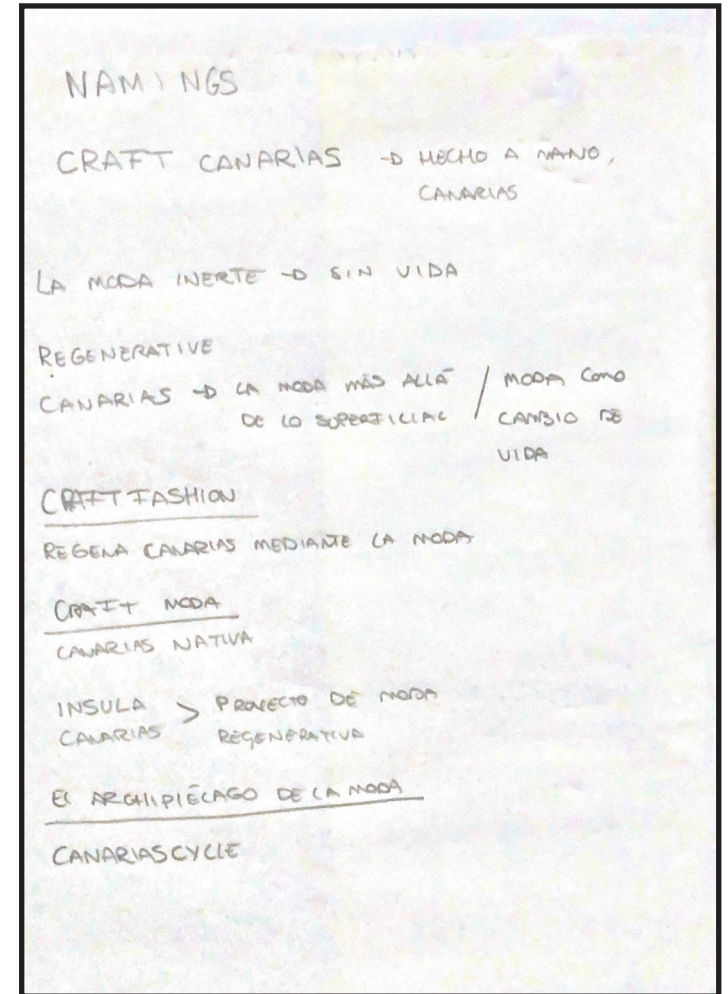 NAMINGS
CRAFT CANARIAS → HECHO A MANO,
CANARIAS
LA MODA INERTE → SIN VIDA
REGENERATIVE
CANARIAS → LA MODA MÁS ALLÁ / MODA COMO
DE LO SUPERFICIAL / CAMBIO DE
VIDA
CRAFT FASHION
REGENA CANARIAS MEDIANTE LA MODA
CRAFT MODA
CANARIAS NATIVA
INSULA > PROYECTO DE MODA
CANARIAS REGENERATIVA
EL ARCHIPIÉLAGO DE LA MODA
CANARIASCYCLE